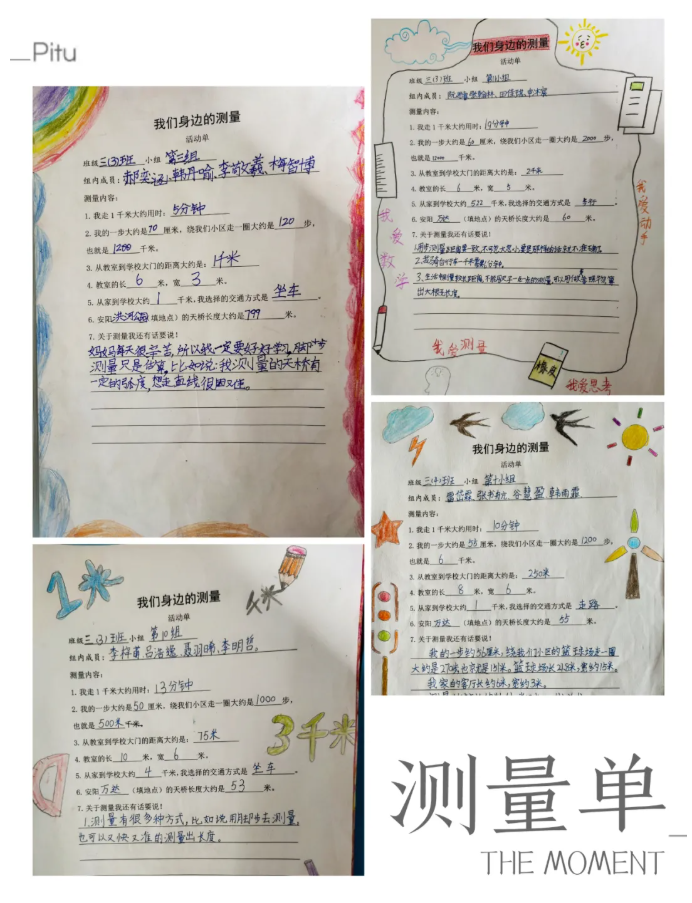 _Pitu
我们身边的测量
活动单
班级 三(3)班 小组 第三组
组内成员: 郝奕涵 韩丹喻 李敬羲 梅智博
测量内容:
1.我走1千米大约用时: 5分钟
2.我的一步大约是70厘米,绕我们小区走一圈大约是120步,
也就是1200千米。
3.从教室到学校大门的距离大约是: 1千米
4.教室的长6米,宽3米。
5.从家到学校大约1千米,我选择的交通方式是坐车。
6.安阳洪河公园(填地点)的天桥长度大约是799米。
7.关于测量我还有话要说!
妈妈每天很辛苦,所以我一定要好好学习,用脚步
测量只是估算,比如说:我测量的天桥有
一定的弧度,想走直线很困难。
我们身边的测量
活动单
班级 三(3)班 小组 第10组
组内成员: 李梓菡 吕浩 聂羽晞、李明哲。
测量内容:
1.我走1千米大约用时: 13分钟
2.我的一步大约是50厘米,绕我们小区走一圈大约是1000步,
也就是500米千米。
3.从教室到学校大门的距离大约是: 75米
4.教室的长10米,宽6米。
5.从家到学校大约4千米,我选择的交通方式是坐车。
6.安阳万达(填地点)的天桥长度大约是53米。
7.关于测量我还有话要说!
1.测量有很多种方式,比如说用脚步去测量,
也可以又快又准的测量出长度。
1米
千米
3千米
我们身边的测量
活动单
班级 三(3)班 小组 第1小组
组内成员:
测量内容:
1.我走1千米大约用时: 19分钟
2.我的一步大约是60厘米,绕我们小区走一圈大约是2000步,
也就是1200千米。
3.从教室到学校大门的距离大约是: 24米
4.教室的长6米,宽5米。
5.从家到学校大约522千米,我选择的交通方式是步行。
6.安阳万达(填地点)的天桥长度大约是60米。
7.关于测量我还有话要说!
出大概长度。
我爱数学
我爱动手
我爱测量
橡皮
我爱思考
我们身边的测量
活动单
班级 三(4)班 小组 第十小组
组内成员: 韩雨霏
测量内容:
1.我走1千米大约用时: 10分钟
2.我的一步大约是55厘米,绕我们小区走一圈大约是1200步,
也就是6千米。
3.从教室到学校大门的距离大约是: 250米
4.教室的长8米,宽6米。
5.从家到学校大约1千米,我选择的交通方式是走路。
6.安阳万达(填地点)的天桥长度大约是55米。
7.关于测量我还有话要说!
我的一步约56厘米,绕我们小区的篮球场走一圈
大约是270米也就是151米。篮球场长28米,宽约15米。
我家的客厅长约6米,宽约3米。
测量单
THE MOMENT